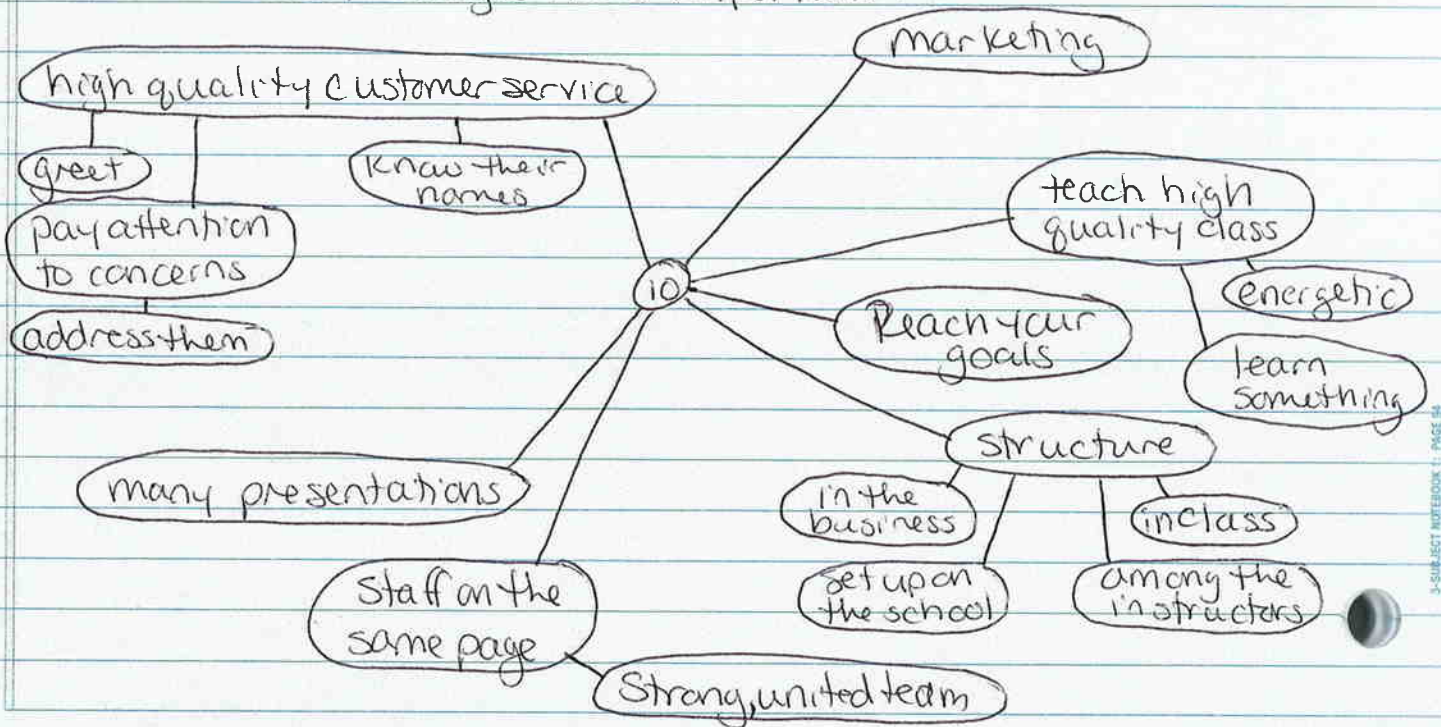 marketing
high quality customer service
greet
know their
names
pay attention
to concerns
address them
teach high
quality class
energetic
learn
something
10
Reach your
goals
structure
in the
business
in class
set up on
the school
among the
instructors
many presentations
Staff on the
same page
Strong, united team
3-SUBJECT NOTEBOOK 1: PAGE 94